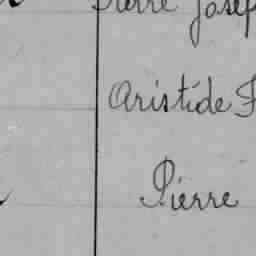 Pierre Josep
Aristide F
Pierre